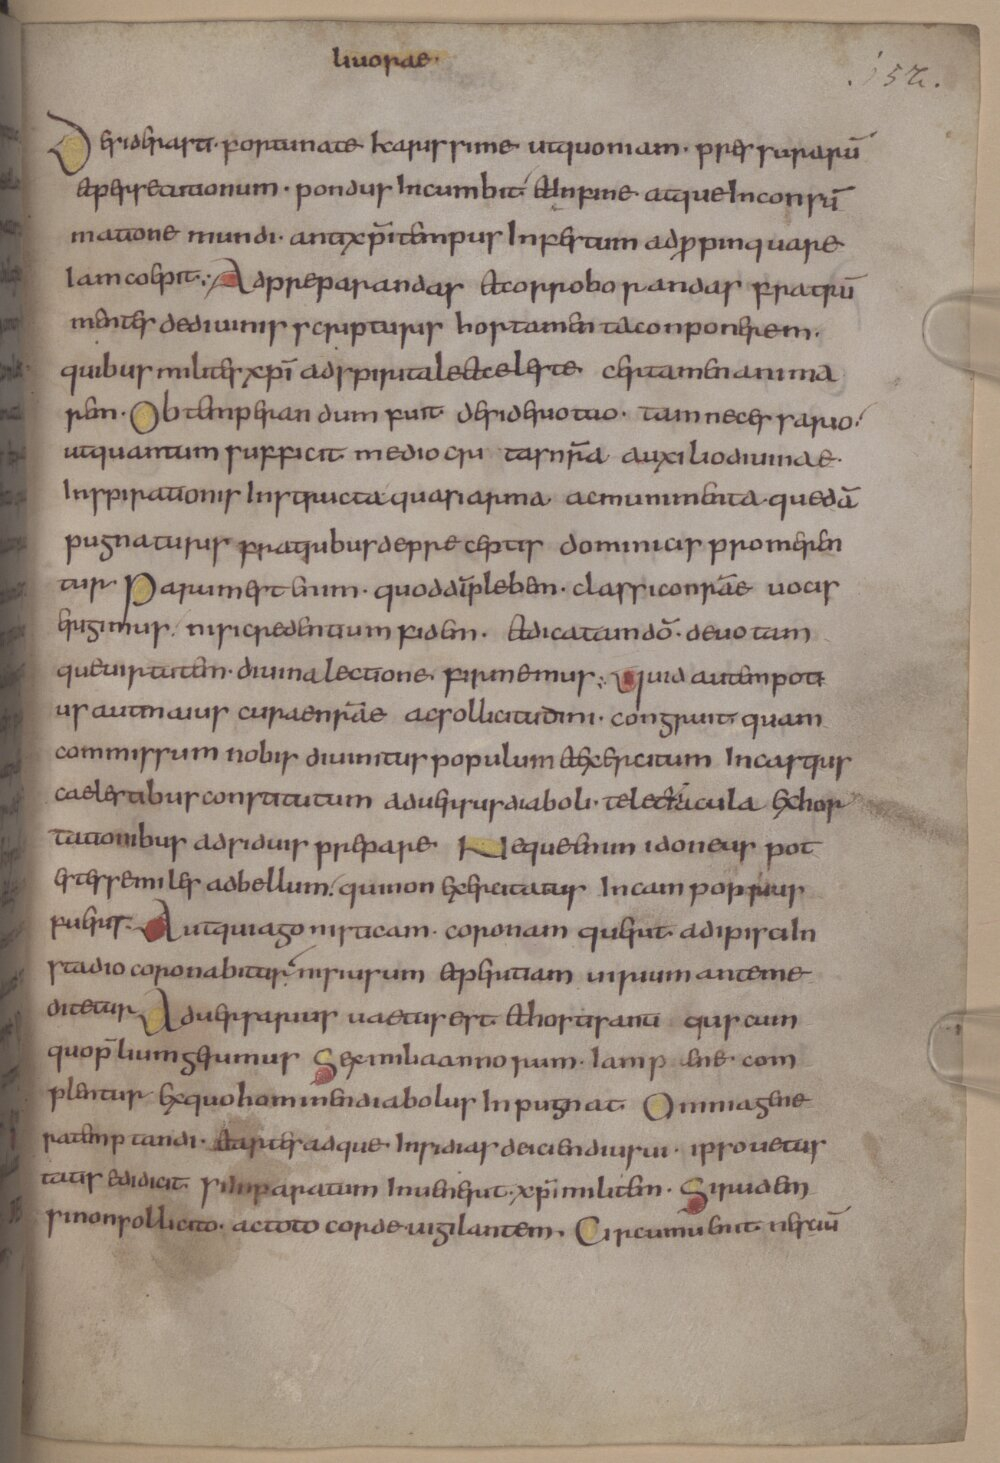 liuorae·
.152.
Desiderasti· fortunate karissime ut quoniam· pressurarū
et persecutionum· pondus Incumbit et Infine atque Inconsū
matione mundi· antixp̄i tempus Infestum adp̱pinquare
Iam coepit; Ad preparandas et corroborandas fratrū
mentes de diuinis scripturis hortamenta conponerem·
quibus milites xp̄i ad spiritale et celeste certamen anima
rem· Obtemperandum fuit desideriuo tuo· tam necessario·
ut quantum sufficit mediocritas nr̄a auxilio diuinae·
Inspirationis Instructa quasi arma ac munimenta· quedā
pugnaturis fratribus de preceptis dominicis promeren
tur Parum est enim· quod dī plebem· classico nr̄ae uocis
erigimus nisi credentium fidem· et dicatam dō· deuotam
que uirtutem· diuina lectione firmemus; Quid autem poti
us aut maius curae nr̄ae ac sollicitudini· congruit quam
commissum nobis diuinitus populum et exercitum In castris
caelestibus constitutum aduersus diaboli· tela et iacula exhor
tationibus adsiduis prepare Neque enim idoneus pot
est esse miles ad bellum. qui non exercitatus In campo prius
fuerit· Aut qui agonisticam· coronam querit adipisci In
stadio coronabitur nisi usum et peritiam uirium ante me
ditetur Aduersarius uaetus est et hostis anti quis cum
quo p̄lium gerimus Sex milia annorum· Iam pene com
plentur ex quo hominem diabolus Inpugnat Omnia gene
ra temptandi· et artes adque Insidias deiciendi usu· ipso uetus
tatis edidicit si Inparatum Inuenerit· xp̄i militem· Si rudem
si non sollicito· ac toto corde uigilantem· Circumuenit nesciū